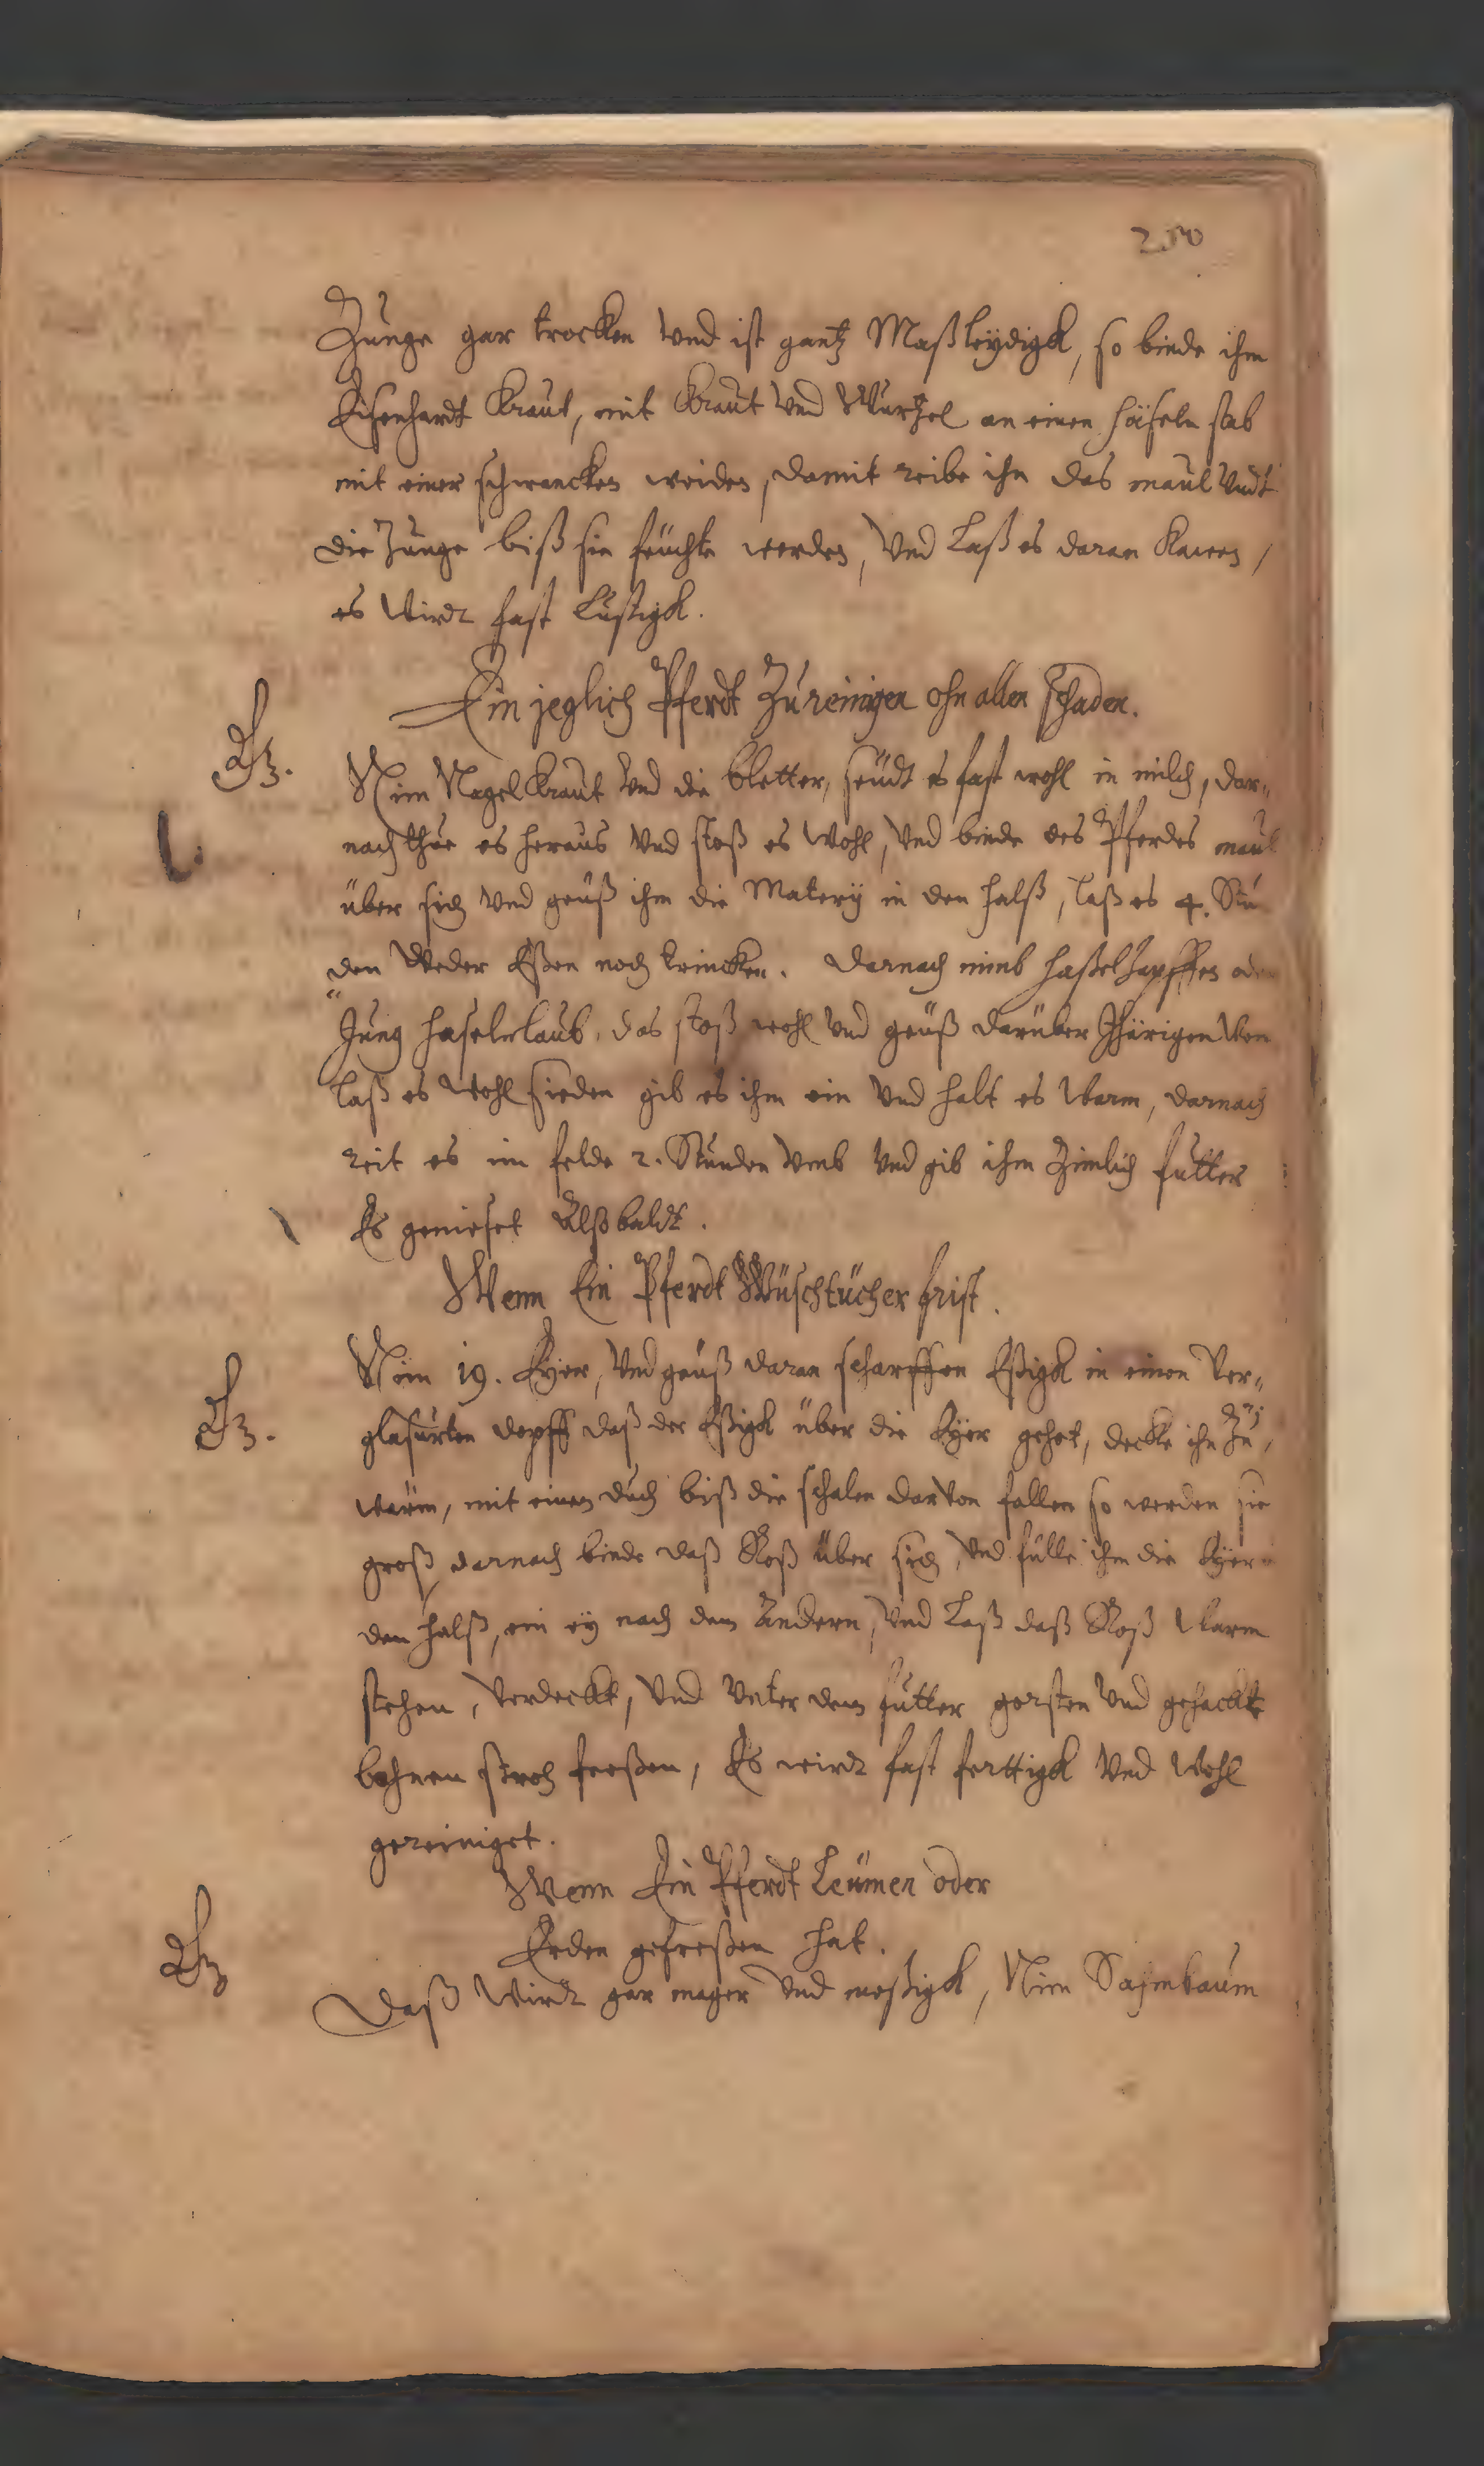 250
Zunge gar trocken vnd ist gantz Maßleydigk, so binde ihm
Eisenhardt Kraut, mit Kraut vnd Wurtzel an einen häseln stab
mit einer schwancken weiden, damit reibe ihm das maul vndt
die Zunge biß sie feuchte werden, vnd Laß es daran Kawen,
es wirdt fast Lustigk.
Ein jeglich Pferdt Zureinigen ohn allen schaden.
Nim Nagelkraut vnd die bletter, seudt es fast wohl in milch, dar„
nach thue es heraus vnd stoß es wohl, vnd binde des Pferdes maul
über sich vnd geuß ihm die Matery in den halß, Laß es 4. Stu„
den weder Eßen noch trincken. Darnach nimb haßelzapffen oder
Jung haselnlaub, das stoß wohl vnd geuß darüber
Laß es wohl sieden gib es ihm ein vnd halt es warm, darnach
reit es im felde 2. Stunden vmb vnd gib ihm Zimlich futter
Es genieset Alßbaldt.
Wenn Ein Pferdt Wüschtücher frist.
Nim 19. Eyer, vnd geuß daran scharffen Eßigk in einen Ver„
glasurten dopff daß der Eßigk über die Eyer gehet, decke ihn Zu,
warm, mit einem duch biß die schalen darvon fallen so werden sie
groß, darnach binde daß Roß über sich, vnd fülle ihm die Eyer
den halß, ein ey nach dem Andern, vnd Laß daß Roß warm
stehen, verdeckt, vnd vnter dem futter gersten vnd gehackt
bohnen stroh freßen, Es wirdt fast fertigk vnd wohl
gereiniget.
Wenn Ein Pferdt Leumen oder
Erden gefreßen hat.
Daß wirdt gar mager vnd meßigk, Nim Safenbaum